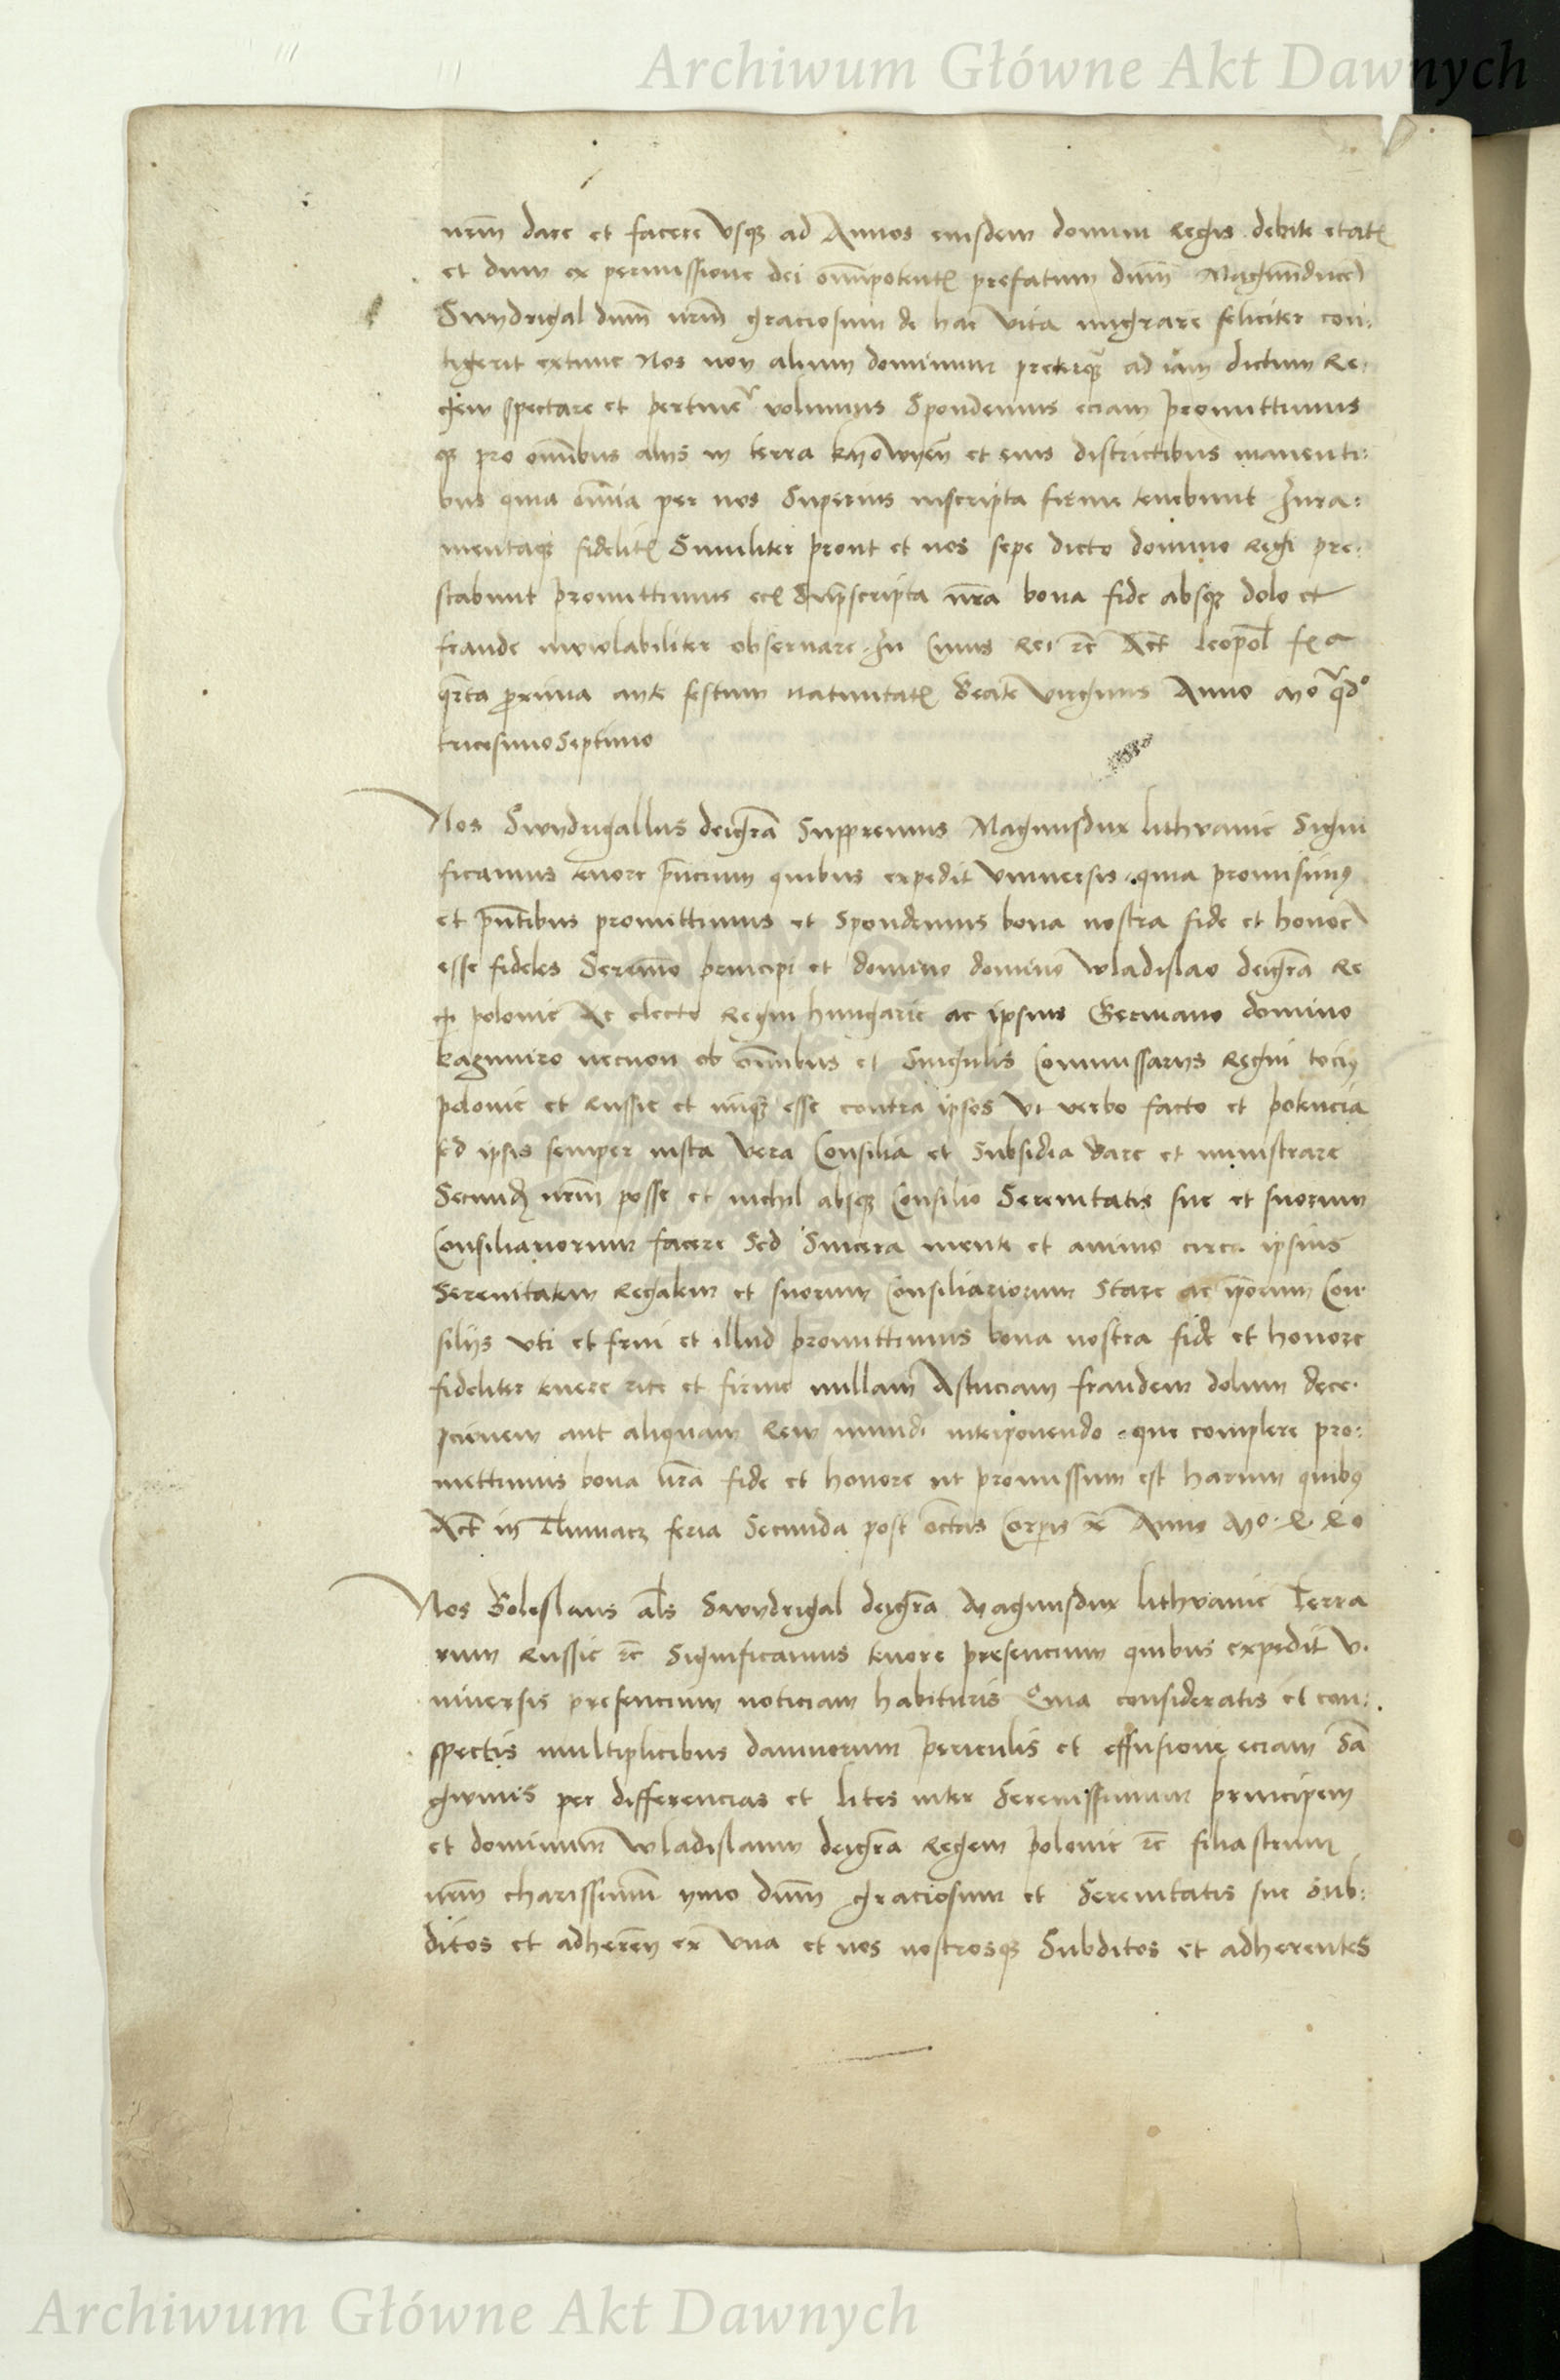 Archiwum Główne Akt Dawnych
nrm̄ dare et facere Vsqȝ ad Annos eiusdem domini Regis debite etatꝭ
et dum ex permissione dei omnipotentꝭ prefatum dnm̄ Magnumducē
Swydrigal dnm̄ nrm̄ graciosum de hac vita migrare feliciter con:
tigerit extunc Nos non alium dominum preterqȝ ad iam dictum Re:
gem spectare et pertinere volumus Spondemus eciam promittimus
qȝ pro omnibus alijs in terra et eius districtibus manenti:
bus quia omnia per nos Superius inscripta firme tenebunt Jura:
mentaqȝ fidelitꝭ Similiter prout et nos sepe dicto domino Regi pre:
stabunt promittimus ecꝭ Suprascripta nrā bona fide absqȝ dolo et
fraude inviolabiliter observare. In Cuius Rei rc̄ Act̄ leopol̄
qrta proxima ante festum natiuitatꝭ Beate Virginis Anno Mo qdo
tricesimo Septimo
Nos Swydrigallus deigrā Suppremus Magnusdux lithvanie Signi
ficamus tenore pn̄cium quibus expedit Vniuersis. quia promisimꝰ
et pn̄tibus promittimus et Spondemus bona nostra fide et honorē
esse fideles Serenmo principi et domino domino Wladislao deigrā Re
gi polonie Ac electo Regni hungarie ac ipsius Germano domino
kazimiro necnon ob omnibus et Singulis Commissarijs Regni tociꝰ
polonie et Russie et nūqȝ esse contra ipsos vt verbo facto et potencia
sed ipsis semper iusta vera Consilia et Subsidia dare et ministrare
Secundȝ nrm̄ posse et nichil absqȝ Consilio Serenitatis sue et suorum
Consiliariorum facere Sed Sincera mente et animo circa ipsius
Serenitatem Regalem et suorum Consiliariorum Stare ac ipōrum Con
silijs vti et frui et illud promittimus bona nostra fide et honore
fideliter tenere rite et firme nullam Astuciam fraudem dolum dece.
pcionem aut aliquam Rem mundi interponendo que complere pro:
mettimus bona nrā fide et honore ut promissum est harum quibꝰ
Act̄ in Tlumacz feria Secunda post octas Corpis x̄ Anno Mo
Nos Boleslaus als̄ Swydrigal deigrā Magnusdux lithvanie Terra
rum Russie rc̄ Significamus tenore presencium quibus expedit v.
niuersis presencium noticiam habituris Quia consideratis et con:
spectis multiplicibus damnorum periculis et effusione eciam Sā
gwinis per differencias et lites inter Serenissimum principem
et dominum Wladislaum deigrā Regem polonie rc̄ filiastrum
nrm̄ charissimū ymo dnm̄ graciosum et Serenitatis sue Sub:
ditos et adherēn ex vna et nos nostrosqȝ Subditos et adherentes
Archiwum Główne Akt Dawnych